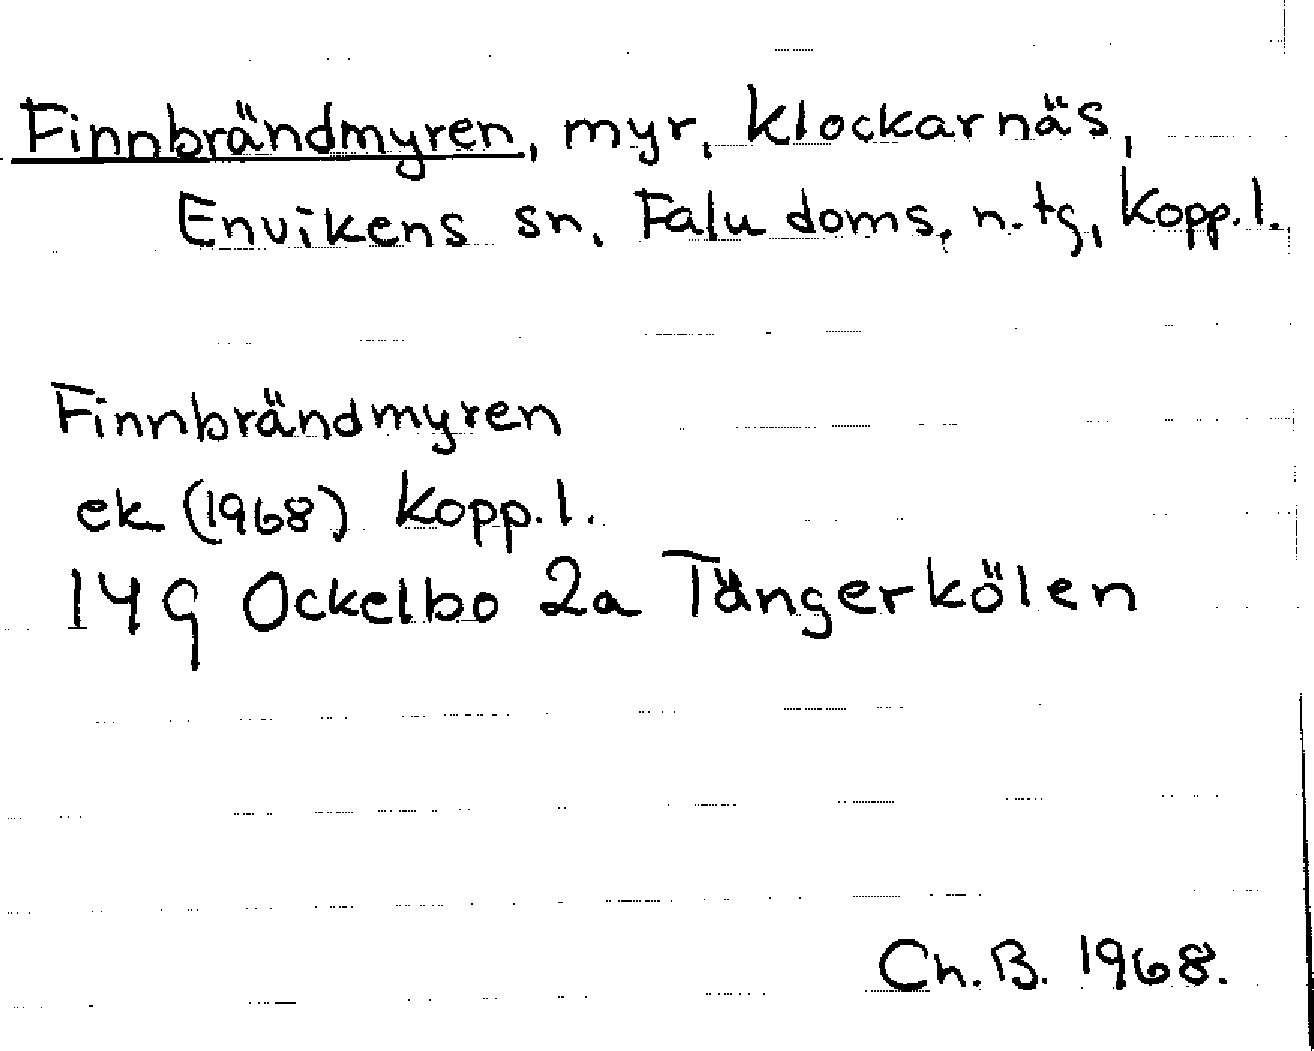 Finnbrändmyren, myr, Klockarnäs,
Envikens sn, Falu doms, n. tg, Kopp. l.
Finnbrändmyren
ek (1968) Kopp. l.
14 G Ockelbo 2a Tängerkölen
Ch. B. 1968.